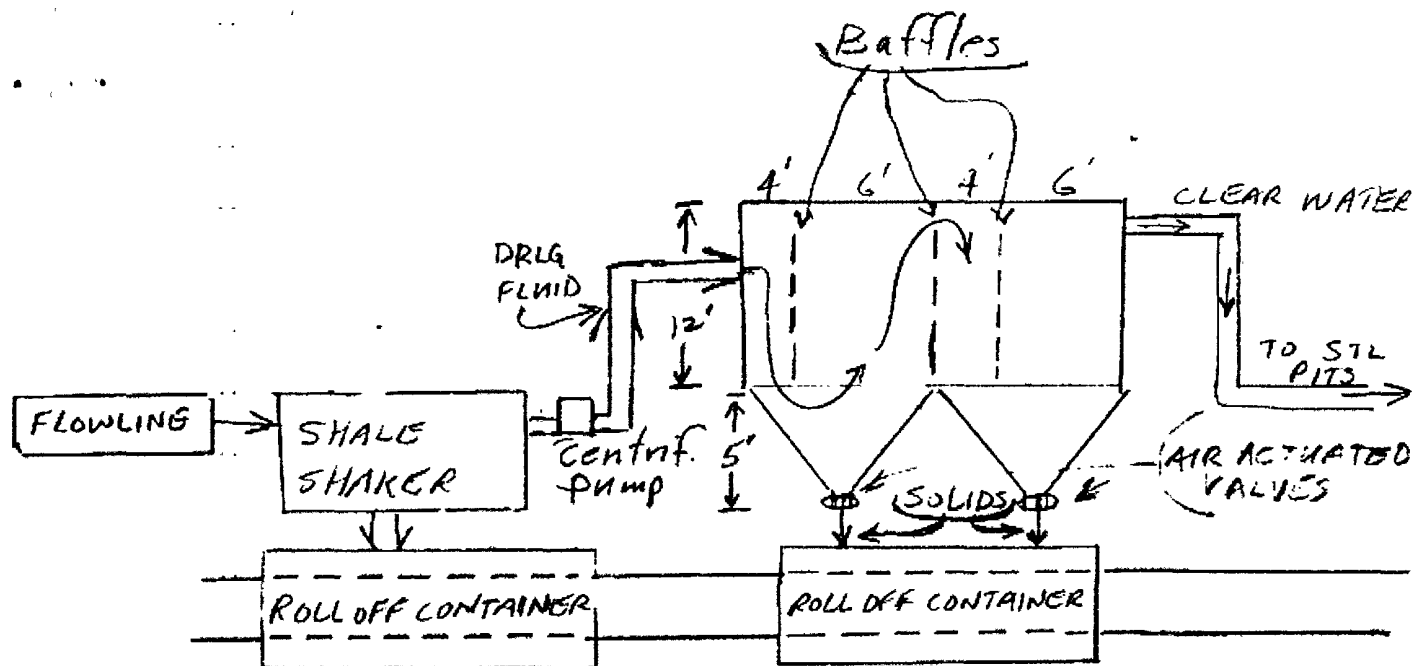 Baffles
4' 6' 4' 6'
CLEAR WATER
DRLG
FLUID
12'
TO STL
PITS
FLOWLING
SHALE
SHAKER
Centrif.
pump
5'
AIR ACTUATED
VALVES
SOLIDS
ROLL OFF CONTAINER
ROLL OFF CONTAINER